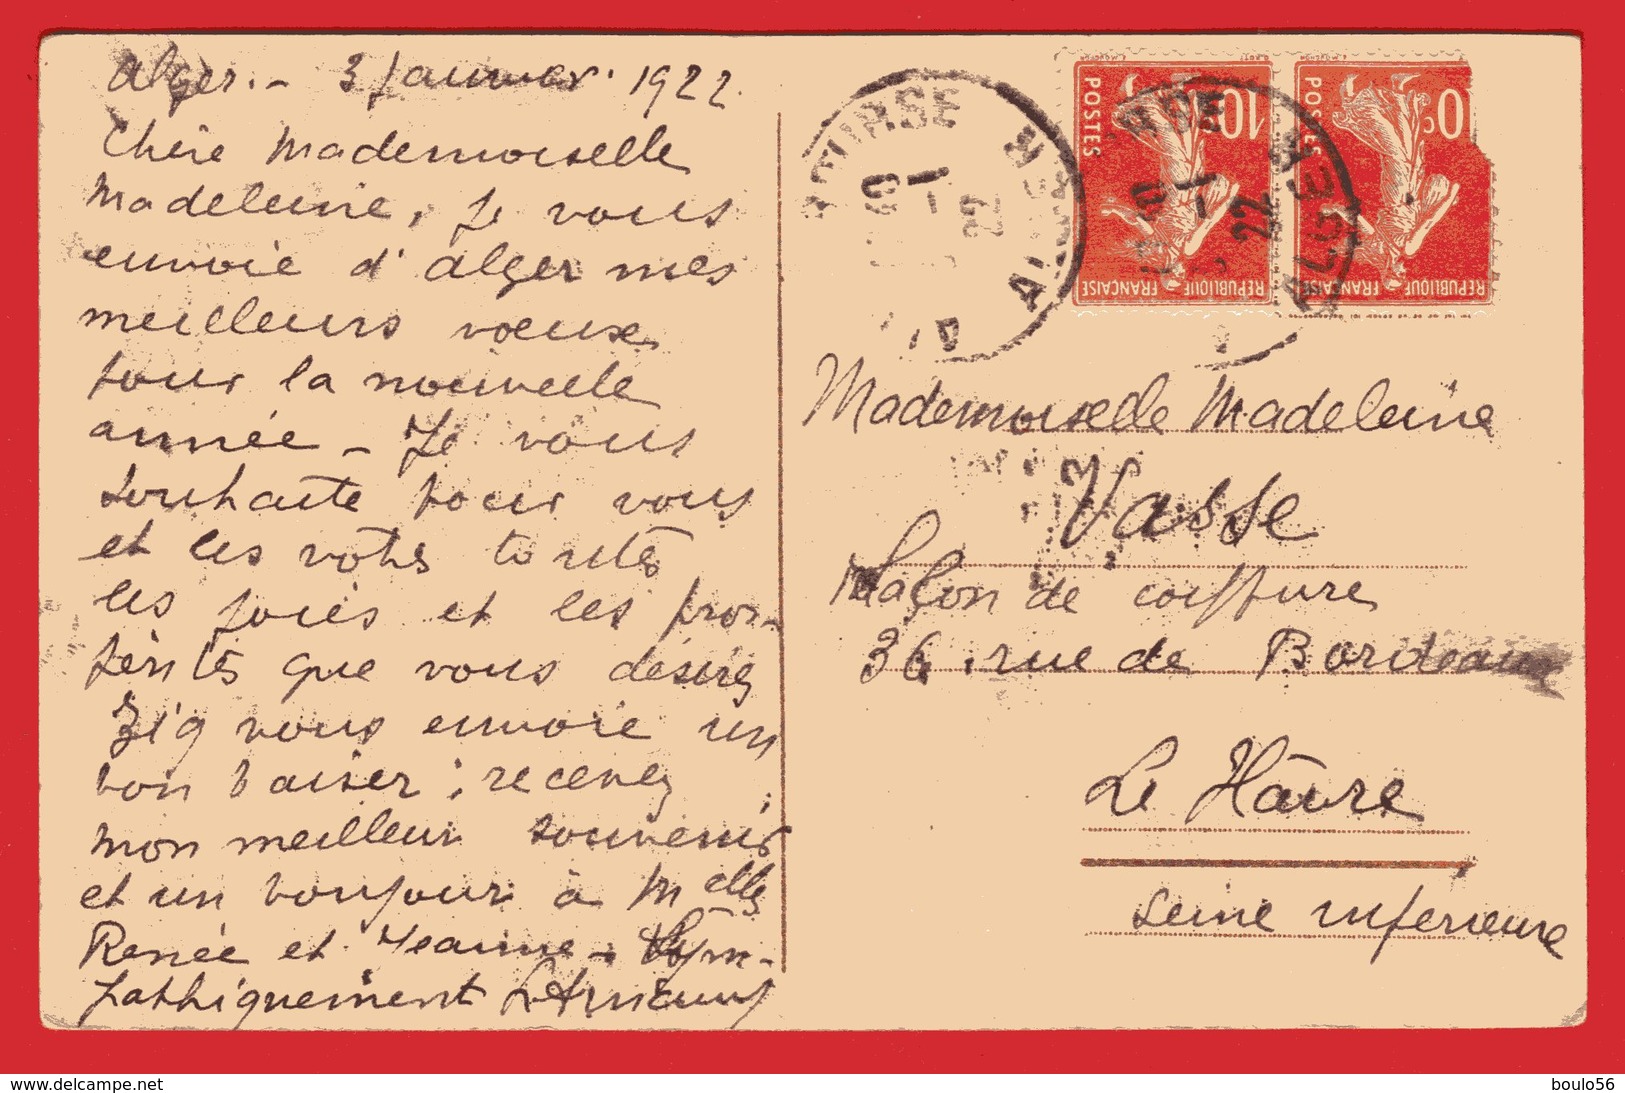 Alger. - 3 Janvier. 1922.
Chère Mademoiselle
Madeleine, Je vous
envoie d'Alger mes
meilleurs voeux
pour la nouvelle
année - Je vous
souhaite pour vous
et les vôtres toutes
les joies et les pros-
pérités que vous désirez
Zig vous envoie un
bon baiser; recevez
mon meilleur souvenir
et un bonjour à Melles
Renée et Jeanne - Sym-
pathiquement
BOURSE
1
22
ALGER
10
POSTES
REPUBLIQUE FRANÇAISE
0c
POSTES
REPUBLIQUE FRANÇAISE
22
ALGER
Mademoiselle Madeleine
Vasse
Salon de coiffure
36, rue de Bordeaux
Le Hâvre
Seine inferieure
www.delcampe.net
boulo56